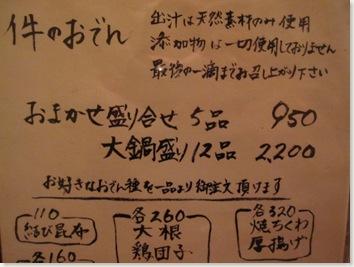 件のおでん
出汁は天然素材のみ使用
添加物は一切使用しておりません
最後の一滴までお召し上がり下さい
おまかせ盛り合せ 5品 950
大鍋盛り 12品 2,200
お好きなおでん種を一品より御注文頂けます
110
結び昆布
各160
各260
大根
鶏団子
各320
焼ちくわ
厚揚げ